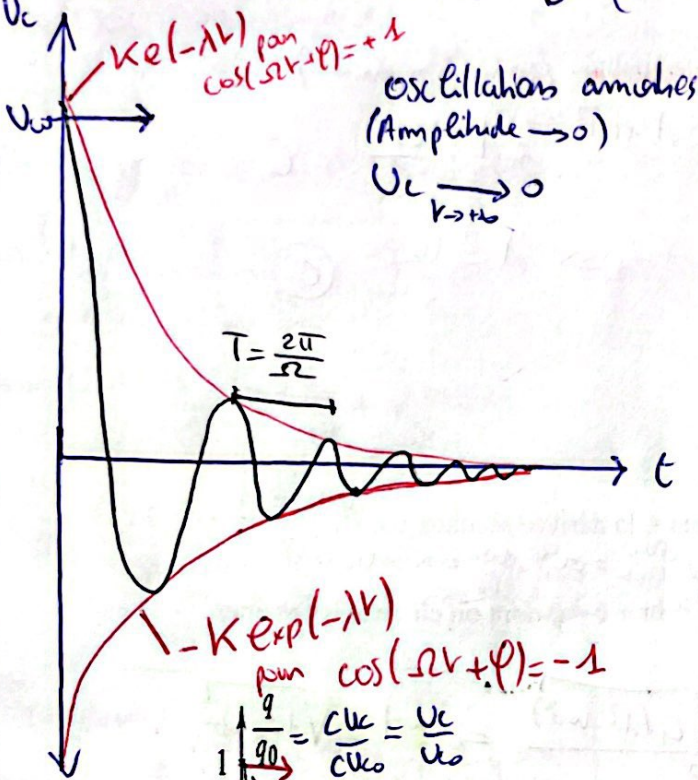 Uc
Ke(-λt) pour
cos(Ωt+φ)=+1
oscillations amorties
(Amplitude → 0)
Uc → 0
t→+∞
Uco
T = 2π/Ω
t
-K exp(-λt)
pour cos(Ωt+φ)=-1
q/q0 = CUc/CUco = Uc/Uco
1